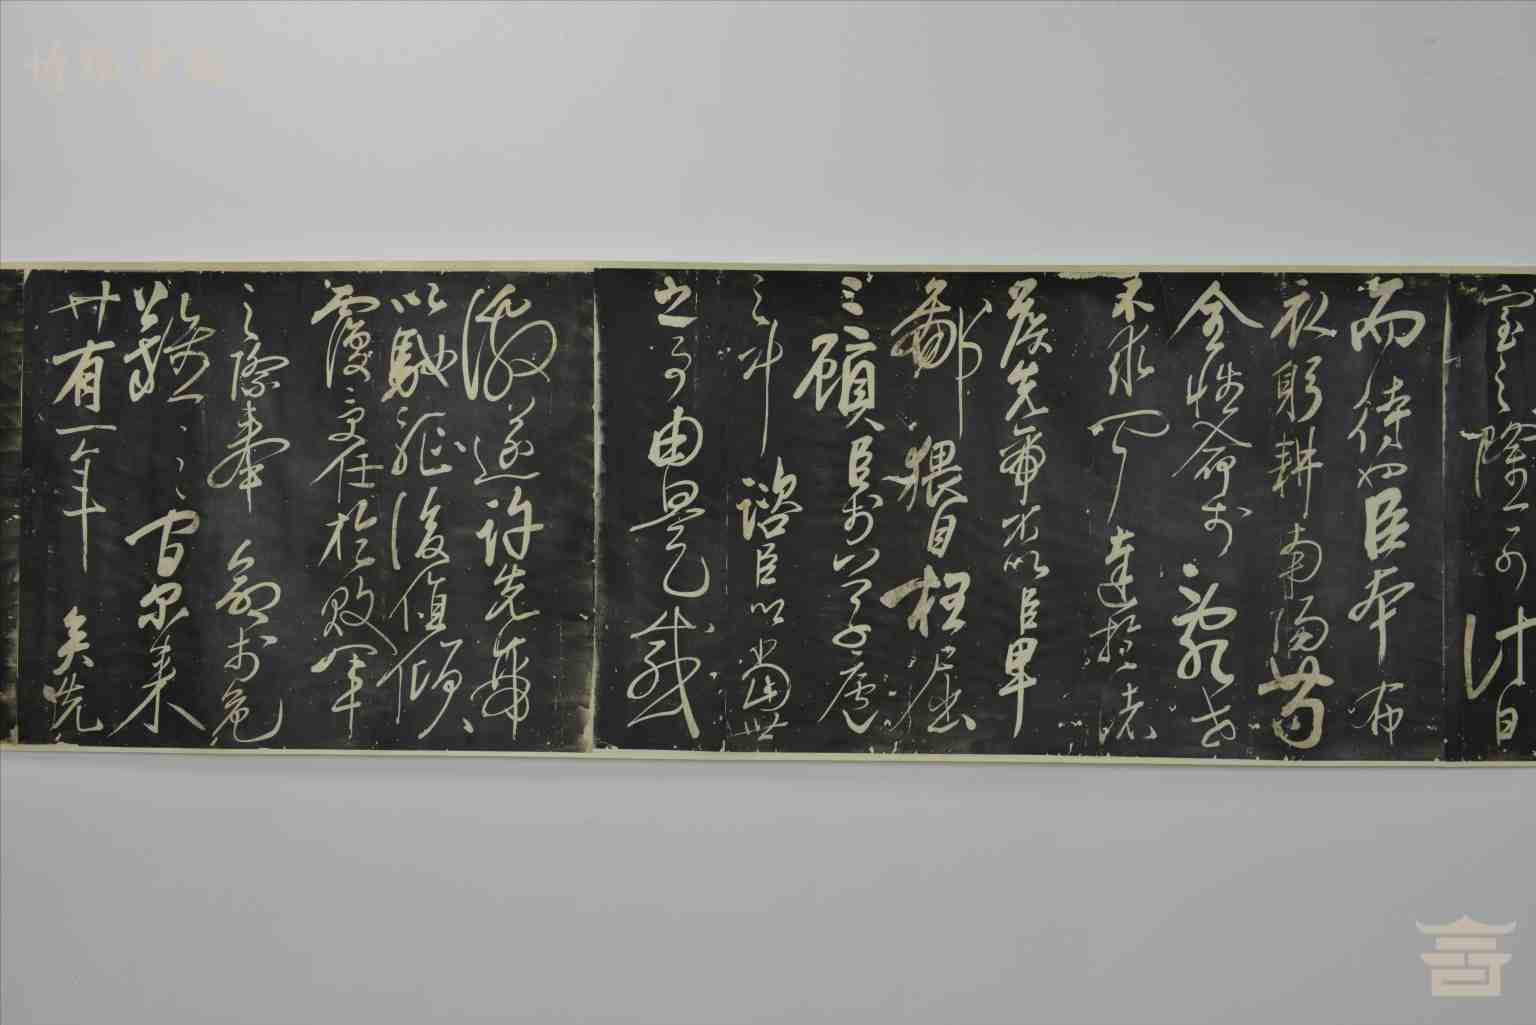 室之隆可計日
而待也臣本布
衣躬耕南陽苟
全性命於亂世
不求聞達於諸
侯先帝不以臣卑
鄙猥自枉屈
三顧臣於草廬
之中諮臣以當世
之事由是感
激遂許先帝
以驅馳後值傾
覆受任於敗軍
之際奉命於危
難之間爾來
廿有一年矣先